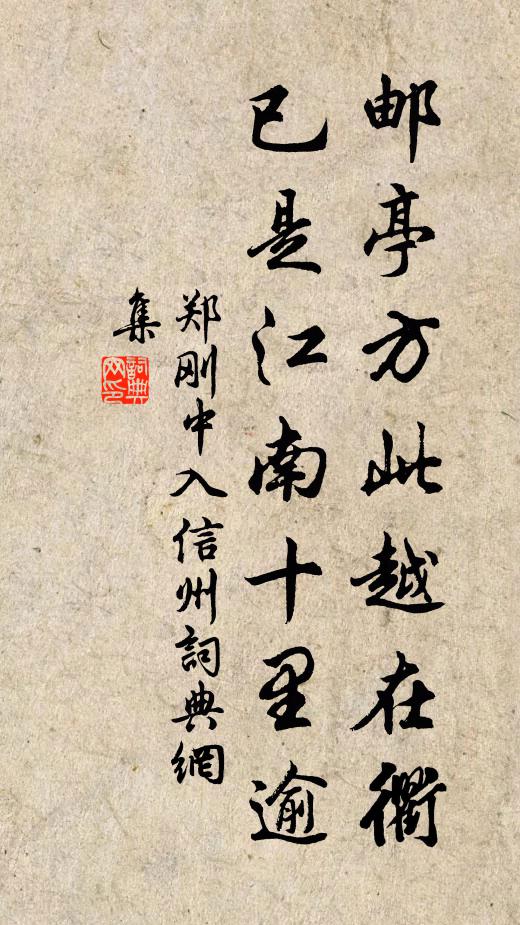 邮亭方此越在衢
已是江南十里逾
郑刚中入信州詞典網
集
詞典网印